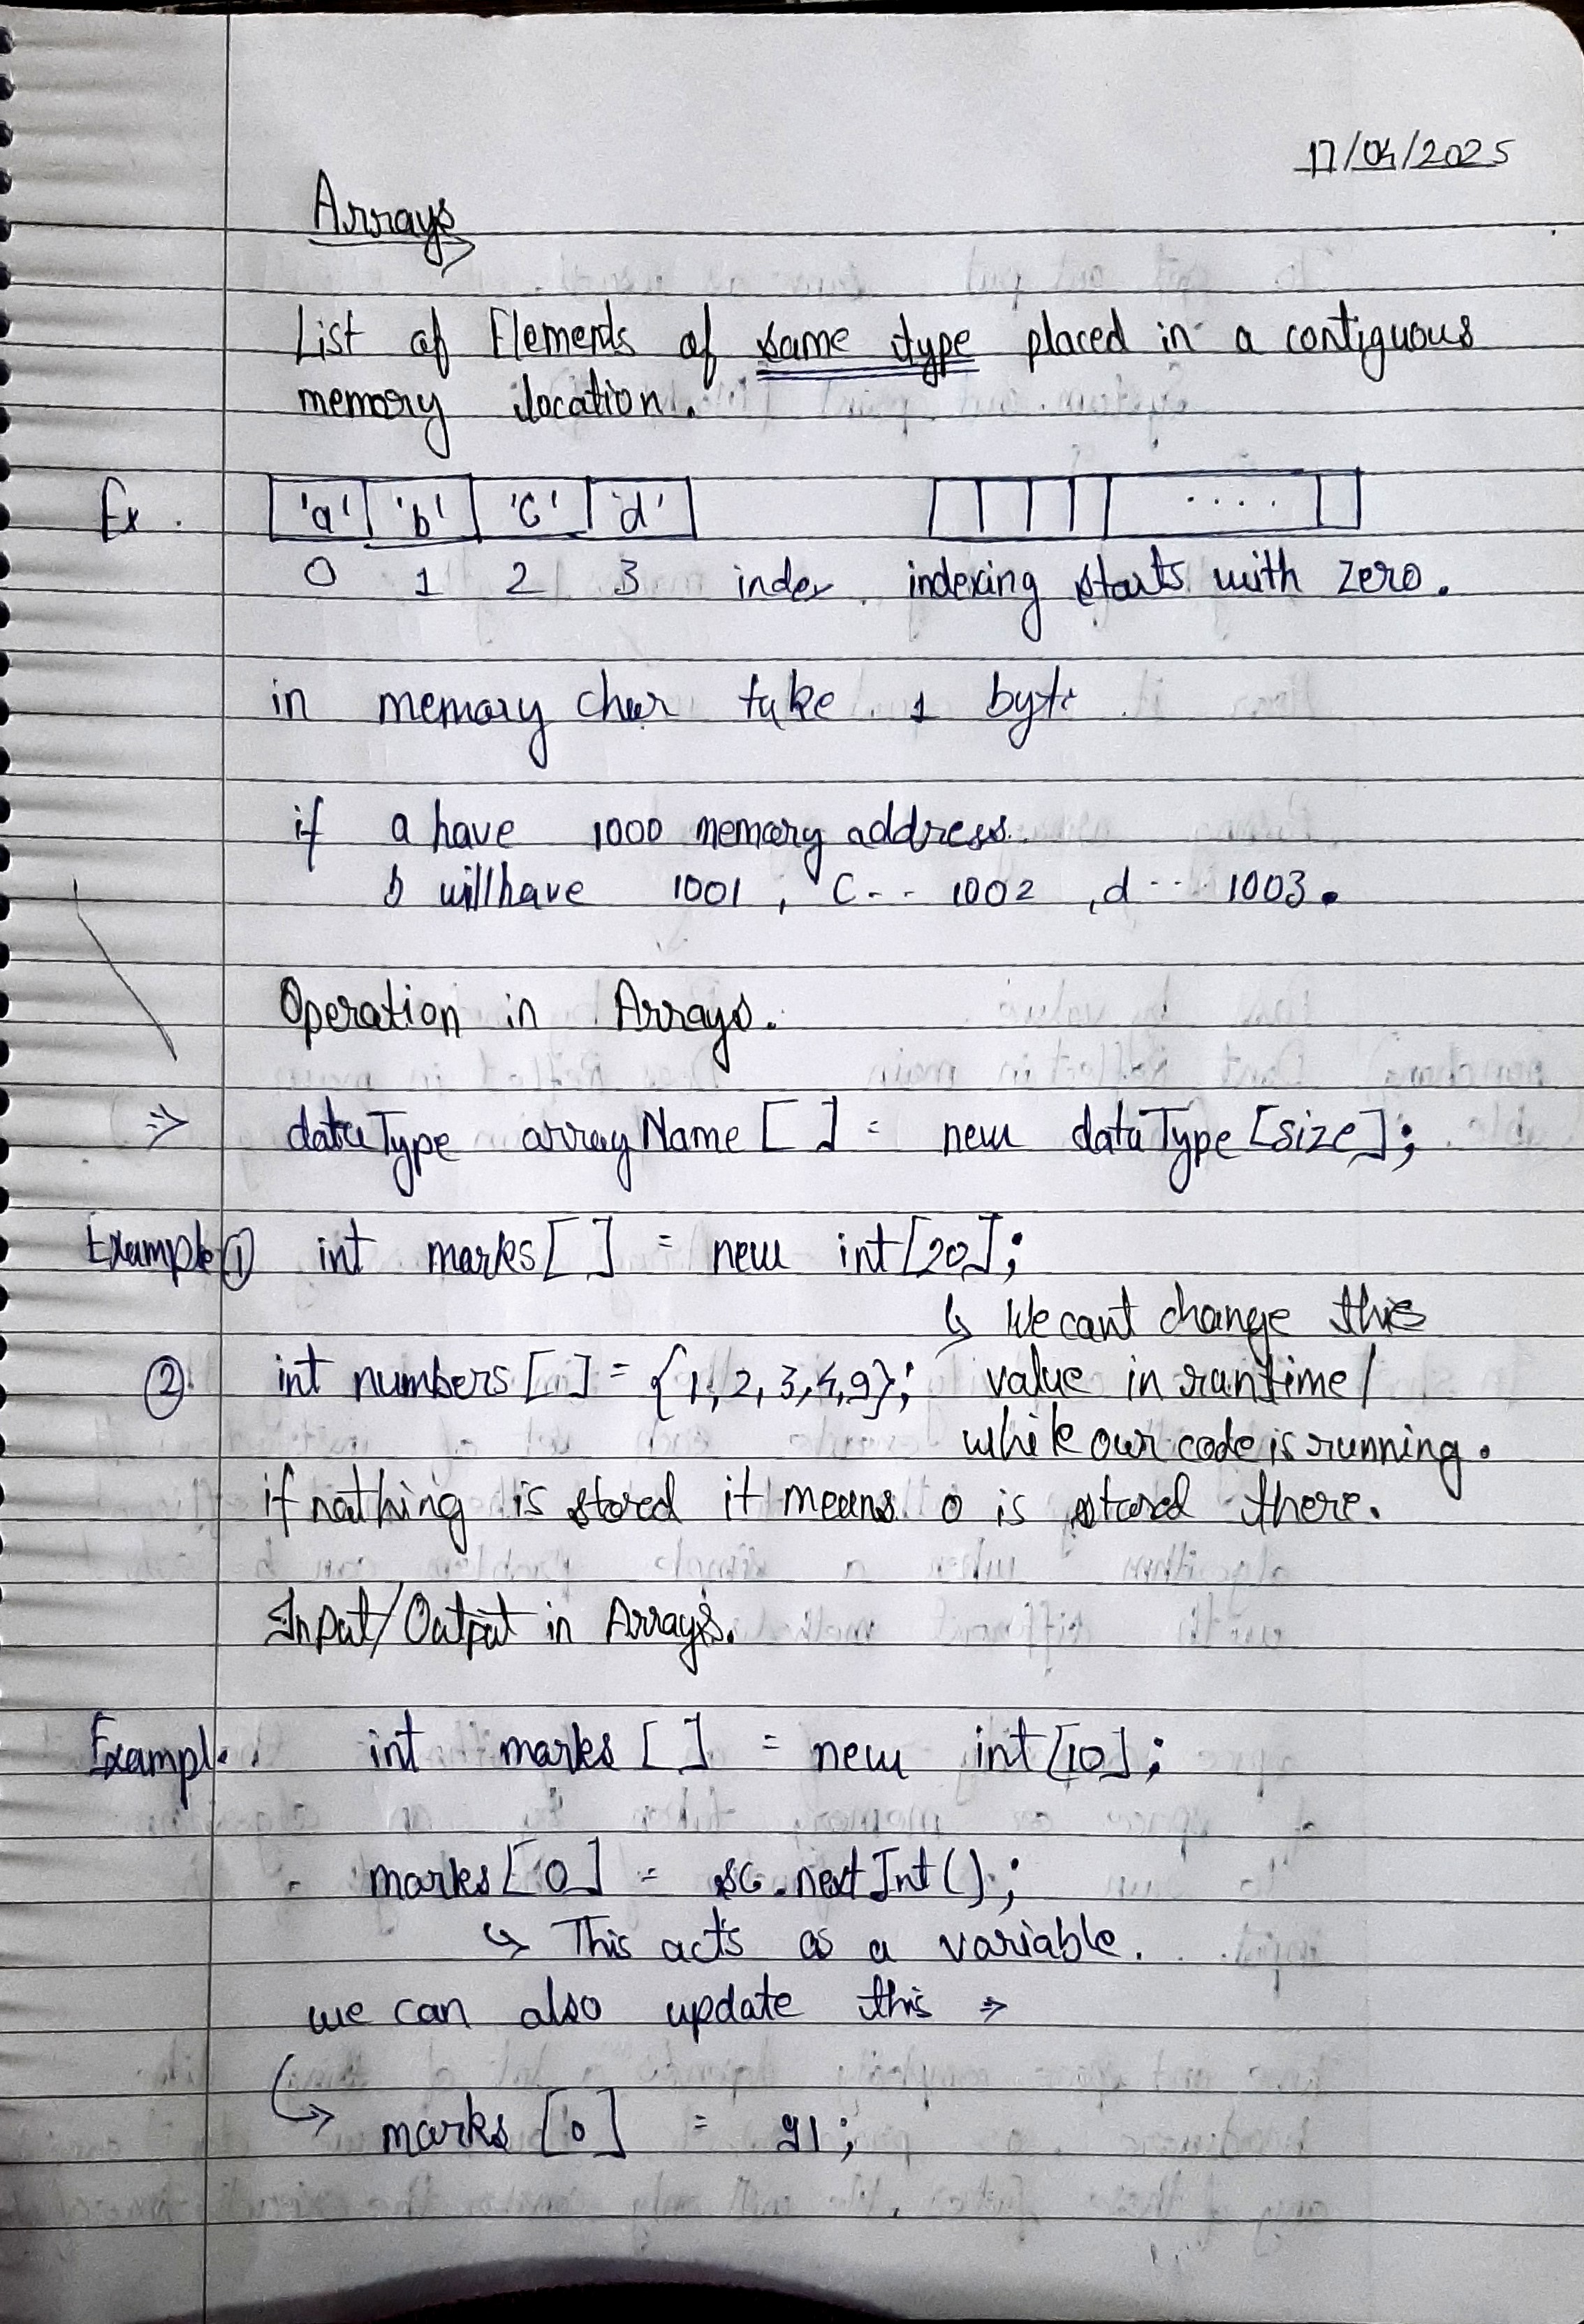 17/04/2025
Arrays
List of Elements of same type placed in a contiguous
memory location.
Ex. 'a' 'b' 'c' 'd' ....
0 1 2 3 index. indexing starts with zero.
in memory char take 1 byte
if a have 1000 memory address.
b will have 1001, C-- 1002, d-- 1003.
Operation in Arrays.
=> dataType arrayName[ ] = new dataType[size];
Example ① int marks[ ] = new int[20];
↳ We cant change this
② int numbers[ ] = {1, 2, 3, 4, 9}; value in runtime/
while our code is running.
if nothing is stored it means 0 is stored there.
Input/Output in Arrays.
Example. int marks [ ] = new int[10];
marks[0] = sc.nextInt();
↳ This acts as a variable.
we can also update this =>
↳ marks [0] = 91;